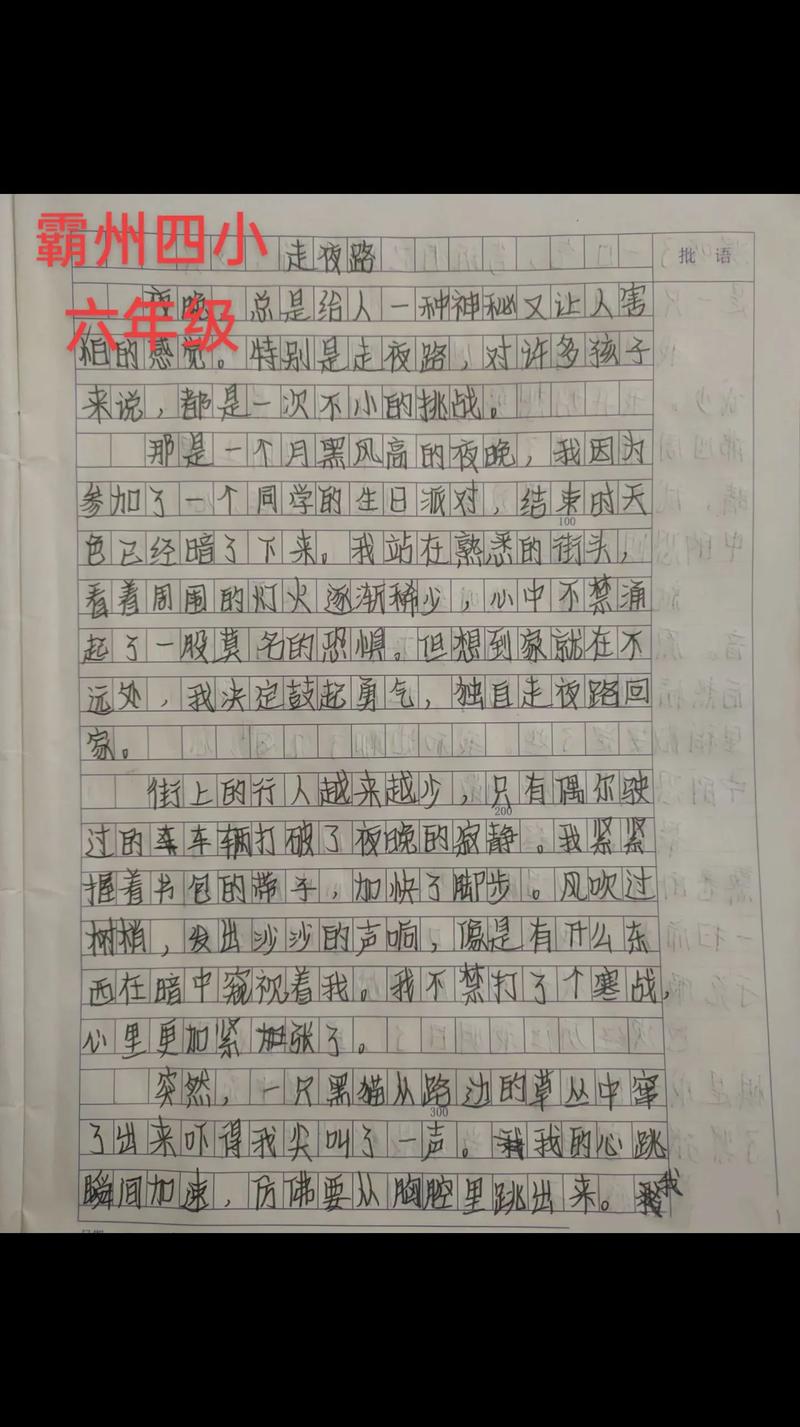 霸州四小
六年级
批 语
走夜路
夜晚，总是给人一种神秘又让人害
怕的感觉。特别是走夜路，对许多孩子
来说，都是一次不小的挑战。
那是一个月黑风高的夜晚，我因为
参加了一个同学的生日派对，结束时天
100
色已经暗了下来。我站在熟悉的街头，
看着周围的灯火逐渐稀少，心中不禁涌
起了一股莫名的恐惧。但想到家就在不
远处，我决定鼓起勇气，独自走夜路回
家。
街上的行人越来越少，只有偶尔驶
200
过的车车辆打破了夜晚的寂静。我紧紧
握着书包的带子，加快了脚步。风吹过
树梢，发出沙沙的声响，像是有什么东
西在暗中窥视着我。我不禁打了个寒战，
心里更加紧张了。
突然，一只黑猫从路边的草丛中窜
300
了出来吓得我尖叫了一声。我的心跳
瞬间加速，仿佛要从胸腔里跳出来。我